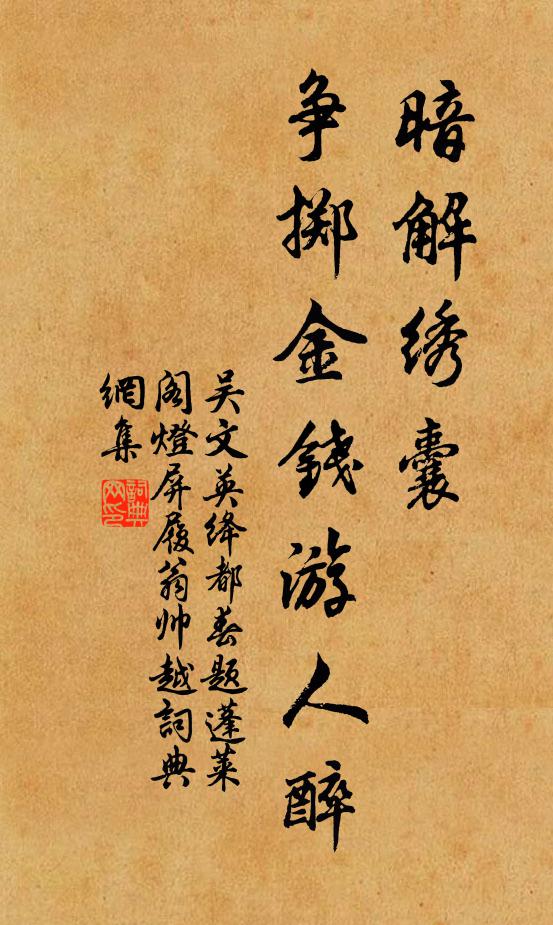 暗解绣囊
争掷金錢游人醉
吴文英绛都春题蓬莱
阁燈屏履翁帅越詞典
網集
詞典网印